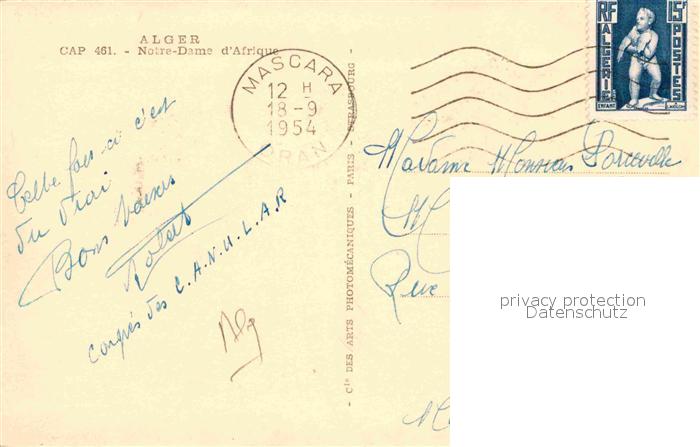 ALGER
CAP 461. - Notre-Dame d'Afrique
MASCARA
12 H
18-9
1954
ORAN
RF
15F
ALGERIE
POSTES
ENFANT
Cette fois ci c'est
du vrai
Bons baisers
Robert
Congrès des C.A.N.U.L.A.R
Alg
Cie DES ARTS PHOTOMÉCANIQUES - PARIS - STRASBOURG -
Madame Monsieur
Rue
privacy protection
Datenschutz